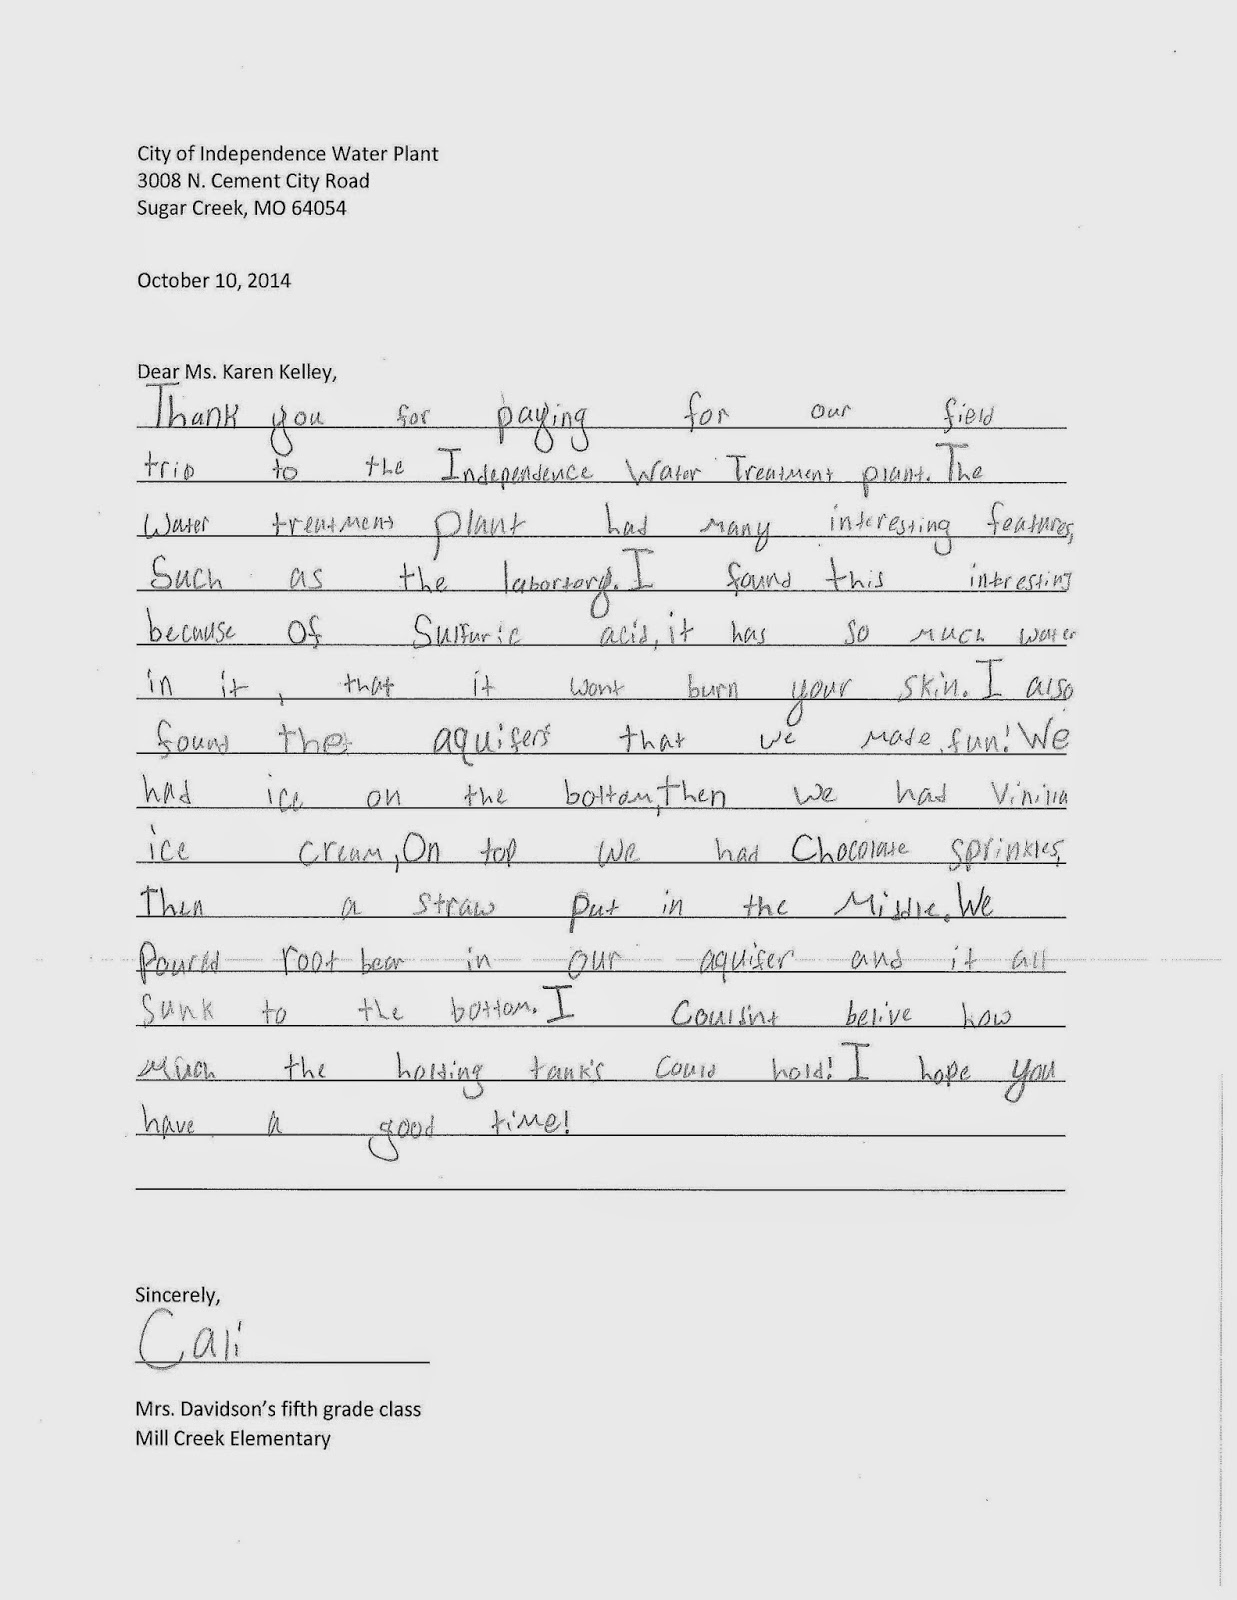 City of Independence Water Plant
3008 N. Cement City Road
Sugar Creek, MO 64054
October 10, 2014
Dear Ms. Karen Kelley,
Thank you for paying for our field
trip to the Independence Water Treatment plant. The
Water treatment plant had many interesting features,
Such as the labortory. I found this intresting
because Of Sulfuric acid, it has so much water
in it, that it wont burn your skin. I also
found the aquifers that we made, fun! We
had ice on the bottom, then we had Vinilla
ice cream, On top we had Chocolate sprinkles,
Then a straw put in the Middle. We
Poured root bear in our aquifer and it all
Sunk to the bottom. I Couldn't belive how
much the holding tank's could hold! I hope you
have a good time!
Sincerely,
Cali
Mrs. Davidson's fifth grade class
Mill Creek Elementary